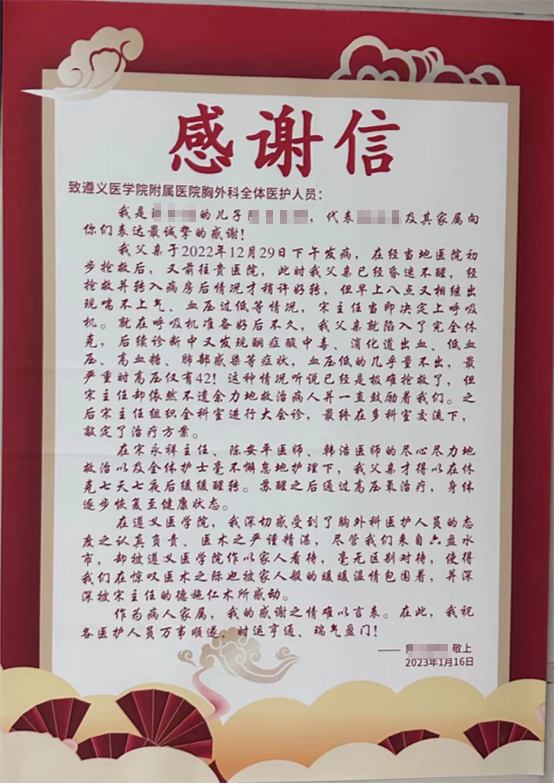 感谢信
致遵义医学院附属医院胸外科全体医护人员：
我是的儿子，代表及其家属向
你们表达最诚挚的感谢！
我父亲于2022年12月29日下午发病，在经当地医院初
步抢救后，又前往贵医院，此时我父亲已经昏迷不醒，经
抢救并转入病房后情况才稍许好转，但早上八点又相继出
现喘不上气、血压过低等情况，宋主任当即决定上呼吸
机。就在呼吸机准备好后不久，我父亲就陷入了完全休
克，后续诊断中又发现酮症酸中毒、消化道出血、低血
压、高血糖、肺部感染等症状，血压低的几乎量不出，最
严重时高压仅有42！这种情况听说已经是极难抢救了，但
宋主任却依然不遗余力地救治病人并一直鼓励着我们。之
后宋主任组织全科室进行大会诊，最终在多科室交流下，
敲定了治疗方案。
在宋永祥主任、陈安平医师、韩浩医师的尽心尽力地
救治以及全体护士毫不懈怠地护理下，我父亲才得以在休
克七天七夜后缓缓醒转。苏醒之后通过高压氧治疗，身体
逐步恢复至健康状态。
在遵义医学院，我深切感受到了胸外科医护人员的态
度之认真负责、医术之严谨精湛，尽管我们来自六盘水
市，却被遵义医学院作以家人看待，毫无区别对待，使得
我们在惊叹医术之际也被家人般的暖暖温情包围着，并深
深被宋主任的德施仁术所感动。
作为病人家属，我的感谢之情难以言表。在此，我祝
各医护人员万事顺遂、时运亨通、瑞气盈门！
—— 敬上
2023年1月16日